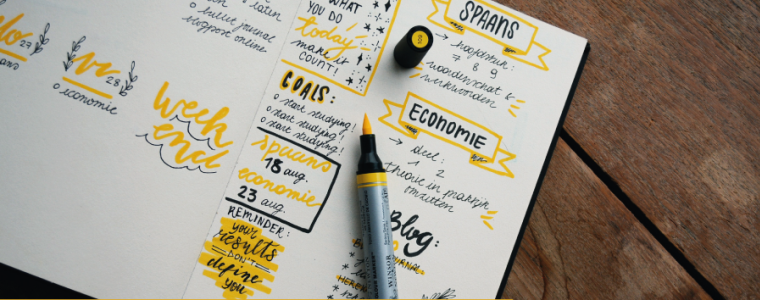 latin
bullet journal
blogpost online
vr 28
economie
Week
end
WHAT
YOU DO
today
make it
COUNT!
GOALS:
start studying!
start studying!
start studying!
spaans
18 aug.
economie
23 aug.
REMINDER:
your
results
DON'T
define
you
SPAANS
hoofdstuk:
7 8 9
woordenschat &
werkwoorden
ECONOMIE
deel:
1 2
theorie in praktijk
omzetten
Blog:
WINSOR